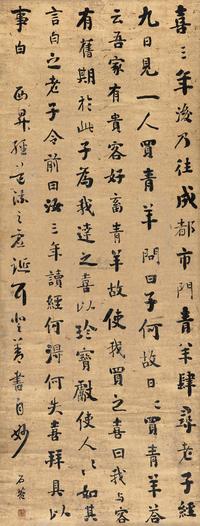 喜三年後乃往成都市門青羊肆尋老子經
九日見一人買青羊問曰子何故日日買青羊答
云吾家有貴客好畜青羊故使我買之喜曰我與客
有舊期於此子為我達之喜以珍寶獻使人人如其
言白之老子令前曰汝三年讀經何得何失喜拜具以
事白 西昇經